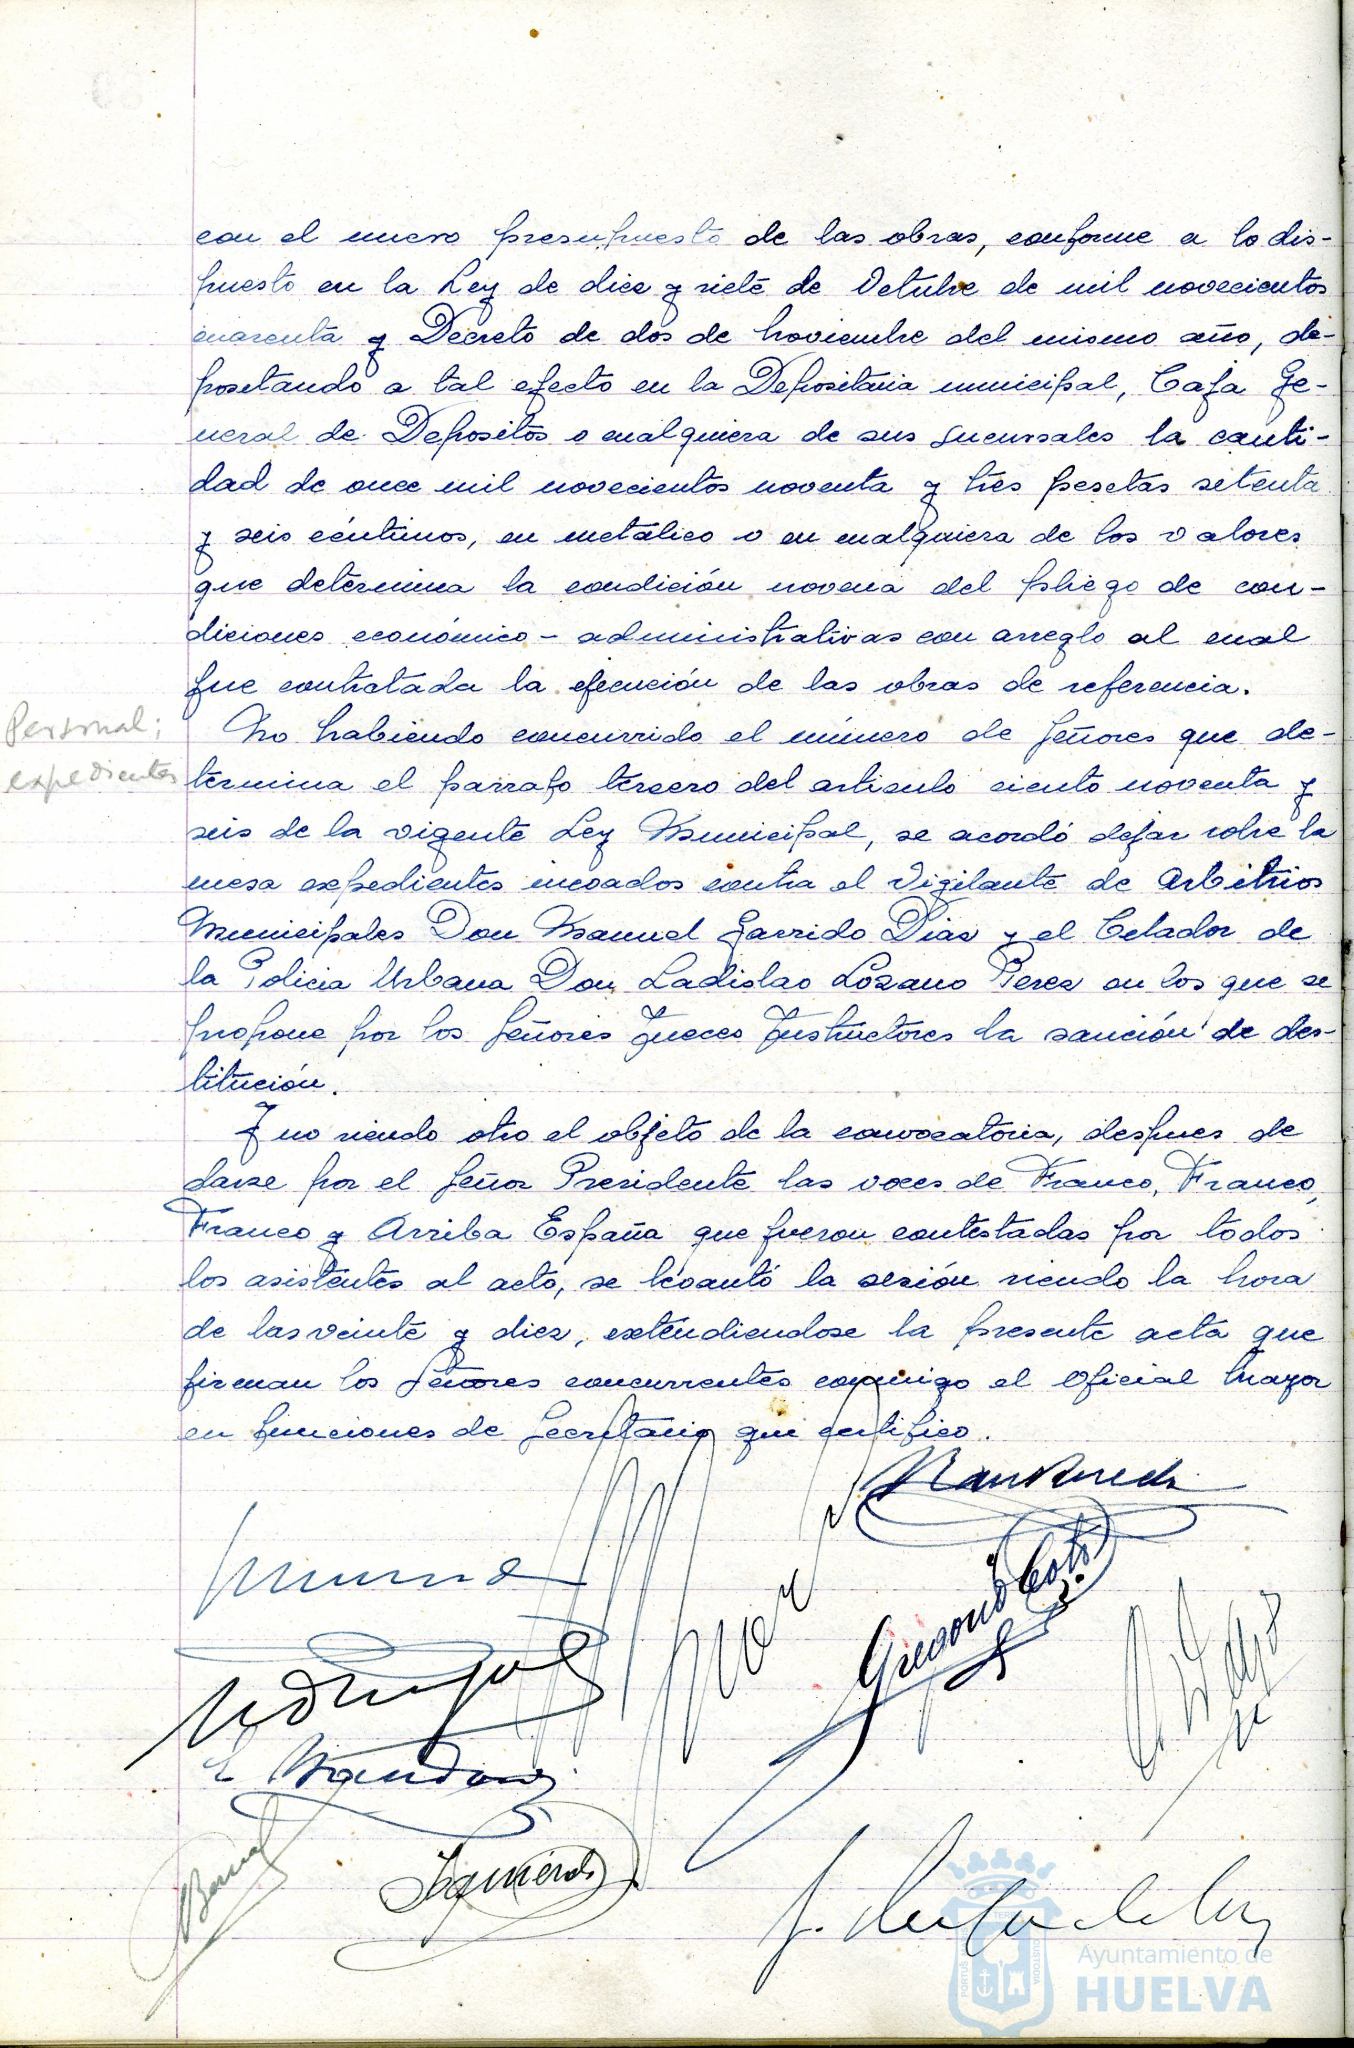 con el nuevo presupuesto de las obras, conforme a lo dis-
puesto en la Ley de diez y siete de Octubre de mil novecientos
cuarenta y Decreto de dos de Noviembre del mismo año, de-
positando a tal efecto en la Depositaria municipal, Caja Ge-
neral de Depositos o cualquiera de sus Sucursales la canti-
dad de once mil novecientos noventa y tres pesetas setenta
y seis céntimos, en metálico o en cualquiera de los valores
que determina la condición novena del pliego de con-
diciones económico-administrativas con arreglo al cual
fue contratada la ejecución de las obras de referencia.
Personal;
expedientes
No habiendo concurrido el número de Señores que de-
termina el parrafo tercero del articulo ciento noventa y
seis de la vigente Ley Municipal, se acordó dejar sobre la
mesa expedientes incoados contra el Vigilante de Arbitrios
Municipales Don Manuel Garrido Dias y el Celador de
la Policia Urbana Don Ladislao Lozano Perez en los que se
propone por los Señores Jueces Instructores la sanción de des-
titución.
Y no siendo otro el objeto de la convocatoria, despues de
darse por el Señor Presidente las voces de Franco, Franco,
Franco y Arriba España que fueron contestadas por todos
los asistentes al acto, se levantó la sesión siendo la hora
de las veinte y diez, extendiendose la presente acta que
firman los Señores concurrentes conmigo el Oficial Mayor
en funciones de Secretario que certifico.
Gregorio Coto
Izquierdo
Ayuntamiento de
HUELVA